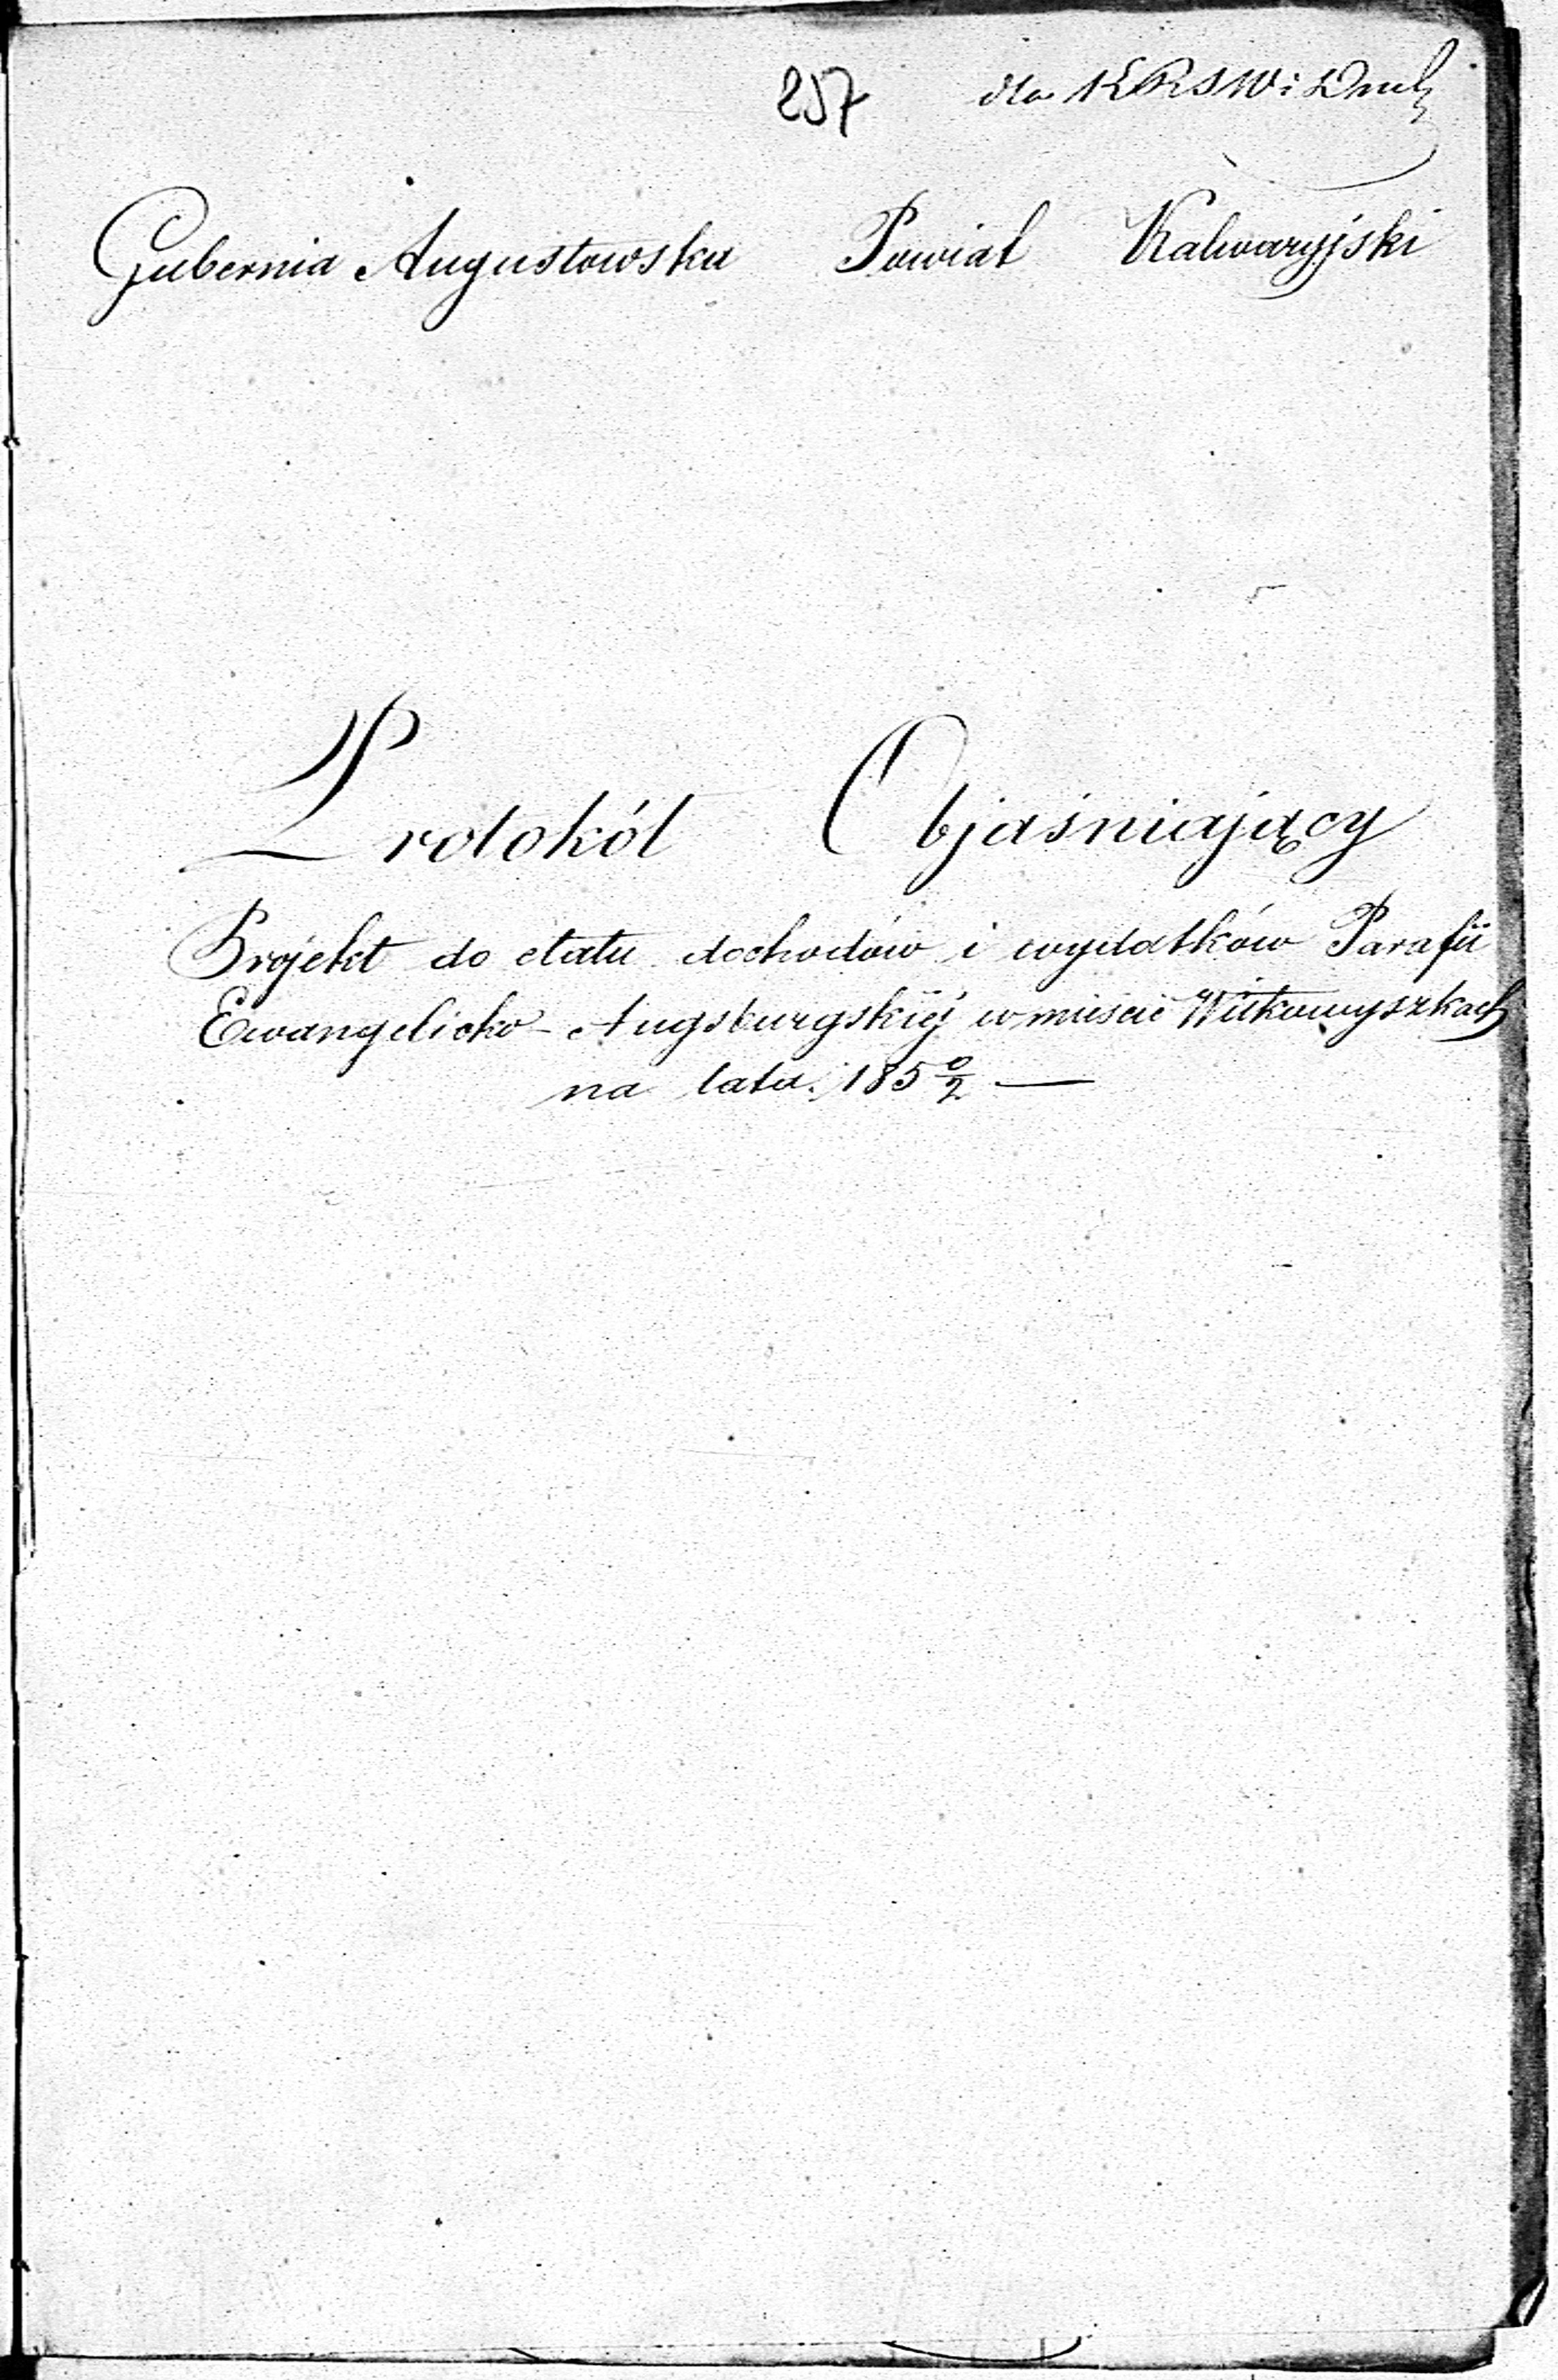 257 dla KRSW i Duch
Gubernia Augustowska Powiat Kalwaryjski
Protokół Objaśniający
Projekt do etatu dochodów i wydatków Parafii
Ewangelicko-Augsburgskiej w mieście Wiłkowyszkach
na lata 185 0/2 —